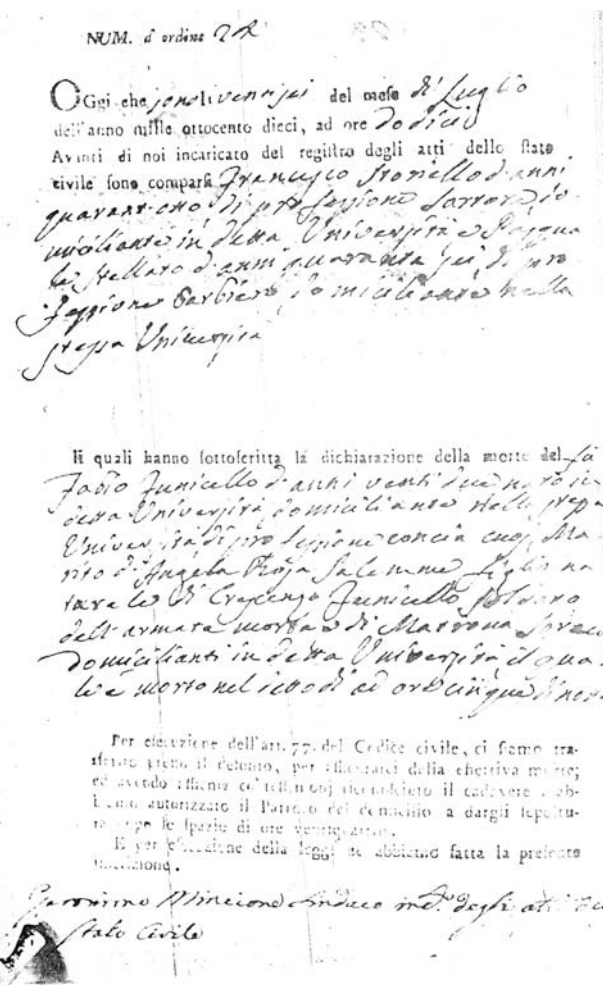 NUM. d'ordine 22
OGgi che sono li venti sei del mese di Luglio
dell'anno mille ottocento dieci, ad ore dodici
Avanti di noi incaricato del registro degli atti dello stato
civile sono comparsi Francesco Storiello d'anni
quarant'otto di professione Sartore do
miciliante in detta Università e Pasqua
le Stellato d'anni quaranta sei di pro
fessione Barbiere domiciliante nella
stessa Università
li quali hanno sottoscritta la dichiarazione della morte del fù
Fabio Funicello d'anni venti due nato in
detta Università domiciliante nella stessa
Università di professione concia Ma
rito d'Angela Rosa Salemme figlio na
turale di Crescenzo Funicello soldato
dell'armata e di Matrona
Domicilianti in detta Università il qua
le è morto nel di ad ore cinque di
Per esecuzione dell'art. 77. del Codice civile, ci siamo tra-
sferito presso il defonto, per assicurarci della effettiva morte;
ed avendo co' testimonj riconosciuto il cadavere ab-
biamo autorizzato il Parroco del domicilio a dargli sepoltu-
ra dopo lo spazio di ore ventiquattro.
E per esecuzione della legge ne abbiamo fatta la presente
iscrizione.
Geronimo Mincione Sindaco degli atti
Stato Civile